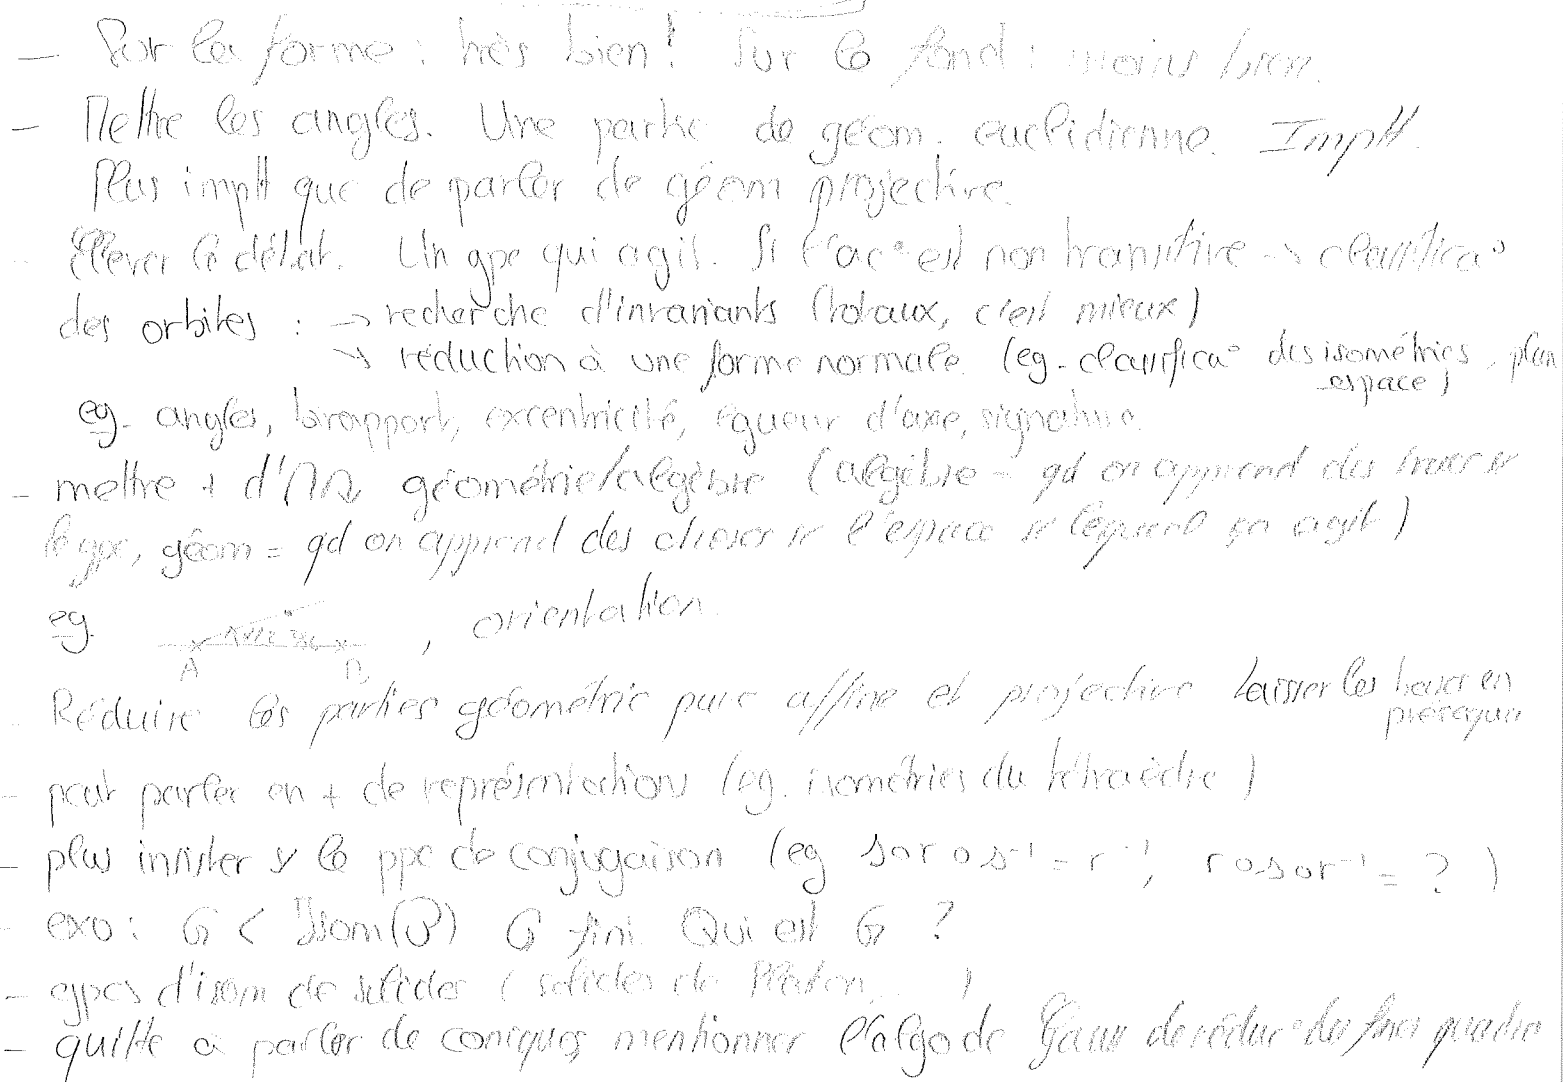 — Sur la forme : très bien ! Sur le fond : moins bien.
— Mettre les angles. Une partie de géom. euclidienne. Imptt.
Plus imptt que de parler de géom projective.
- Élever le débat. Un gpe qui agit. Si l'ac° est non transitive → classifica°
des orbites : → recherche d'invariants (totaux, c'est mieux)
→ réduction à une forme normale. (eg. classifica° des isométries, plan
espace)
eg. angles, birapport, excentricité, d'axe, signature.
- mettre + d' géométrie/algèbre (algèbre = qd on apprend des trucs sr
le gpe, géom = qd on apprend des choses sr l'espace sr lequel ça agit)
eg. A B , orientation.
- Réduire les parties géométrie pure affine et projective Laisser les bases en
prérequis
- peut parler en + de représentations (eg. isométries du tétraèdre)
- plus insister sr le ppe de conjugaison (eg s∘r∘s⁻¹ = r⁻¹, r∘s∘r⁻¹ = ? )
- exo : G < Isom(P) G fini. Qui est G ?
- gpes d'isom de solides (solides de Platon... )
- quitte à parler de coniques mentionner l'algo de Gauss de réduc° des fmes quadra